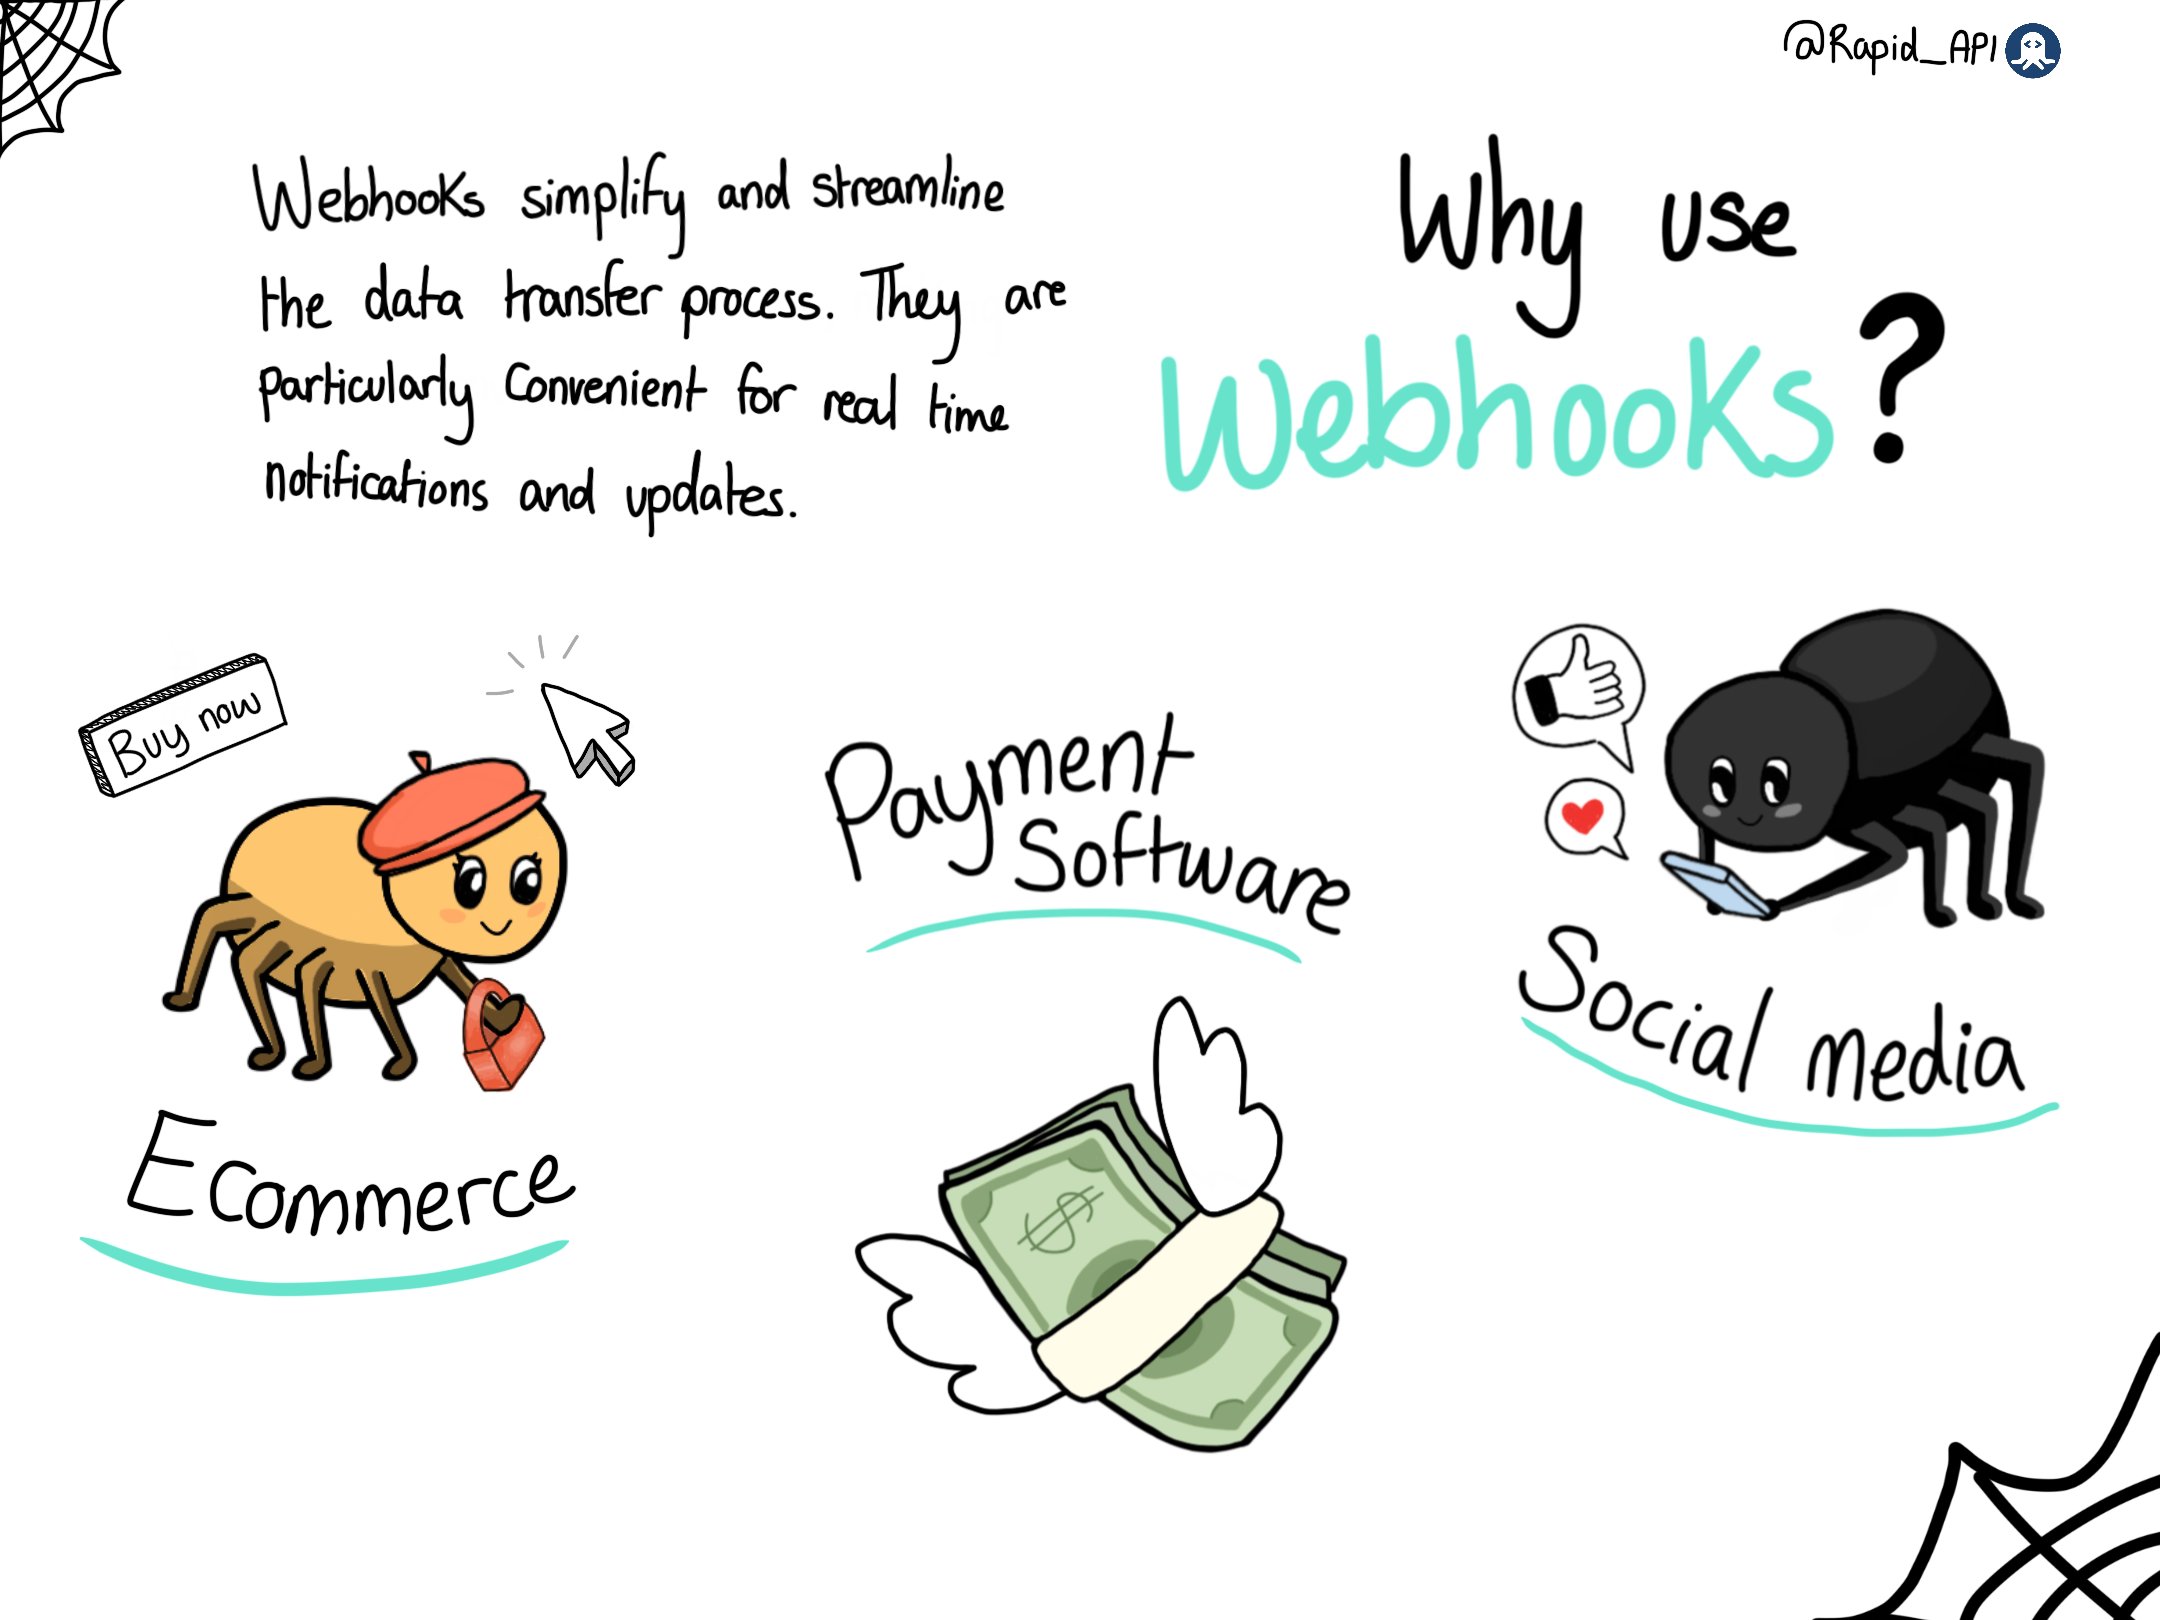 @Rapid_API
Why use
Webhooks?
Webhooks simplify and streamline
the data transfer process. They are
particularly Convenient for real time
notifications and updates.
Buy now
Ecommerce
Payment
Software
$
Social media